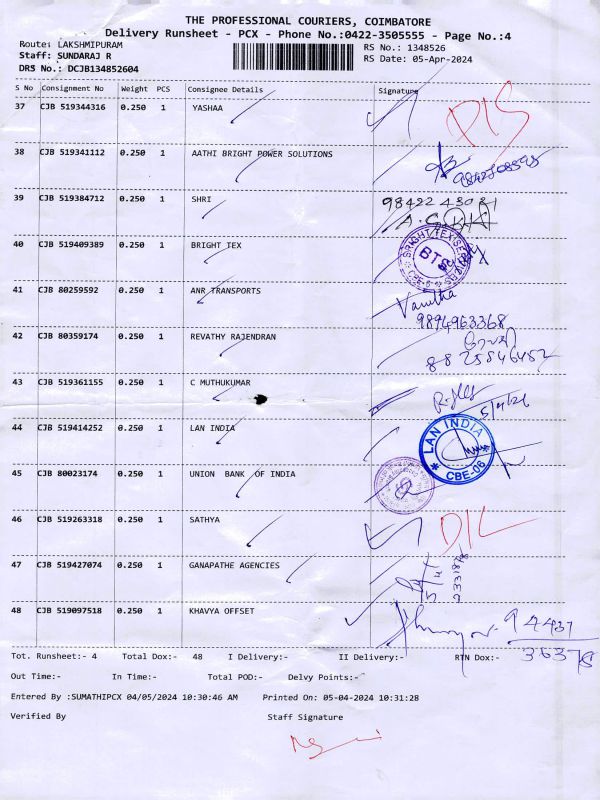 THE PROFESSIONAL COURIERS, COIMBATORE
Delivery Runsheet - PCX - Phone No.:0422-3505555 - Page No.:4
Route: LAKSHMIPURAM
RS No.: 1348526
Staff: SUNDARAJ R
RS Date: 05-Apr-2024
DRS No.: DCJB134852604
S No Consignment No Weight PCS Consignee Details Signature
37 CJB 519344316 0.250 1 YASHAA
38 CJB 519341112 0.250 1 AATHI BRIGHT POWER SOLUTIONS
39 CJB 519384712 0.250 1 SHRI 98422 43081
40 CJB 519409389 0.250 1 BRIGHT TEX BTS
41 CJB 80259592 0.250 1 ANR TRANSPORTS Vanitha
9894963368
42 CJB 80359174 0.250 1 REVATHY RAJENDRAN
8825846452
43 CJB 519361155 0.250 1 C MUTHUKUMAR
44 CJB 519414252 0.250 1 LAN INDIA LAN INDIA
CBE-06
45 CJB 80023174 0.250 1 UNION BANK OF INDIA
46 CJB 519263318 0.250 1 SATHYA DIL
47 CJB 519427074 0.250 1 GANAPATHE AGENCIES
48 CJB 519097518 0.250 1 KHAVYA OFFSET 94437
36378
Tot. Runsheet:- 4 Total Dox:- 48 I Delivery:- II Delivery:- RTN Dox:-
Out Time:- In Time:- Total POD:- Delvy Points:-
Entered By :SUMATHIPCX 04/05/2024 10:30:46 AM Printed On: 05-04-2024 10:31:28
Verified By Staff Signature